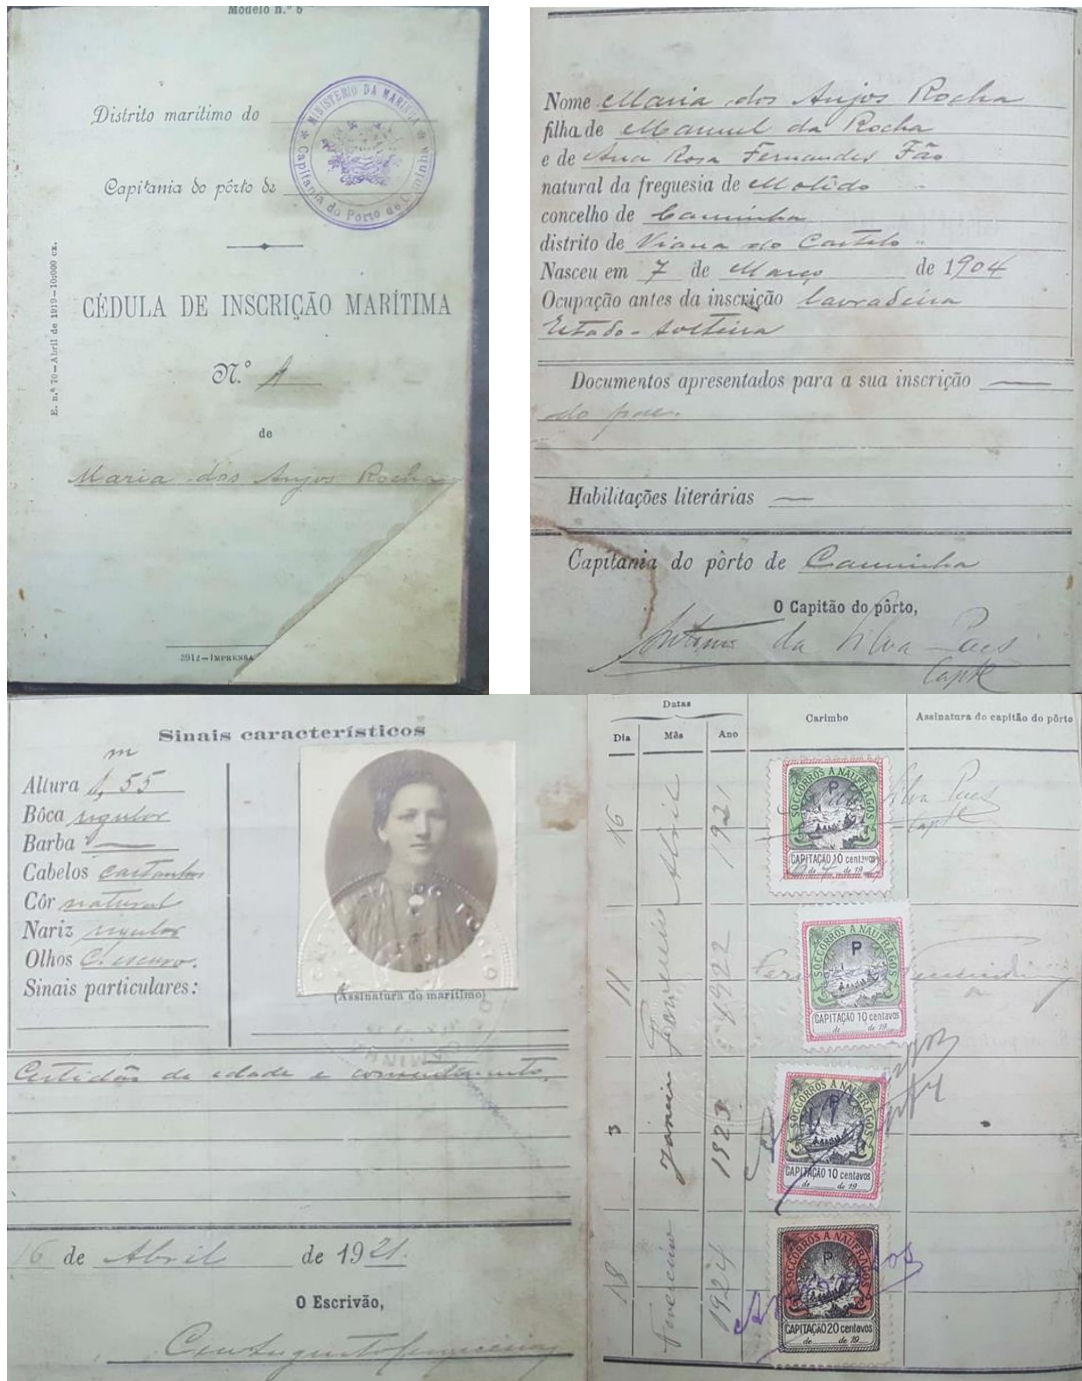 Modelo n.º 6
Distrito marítimo do
MINISTERIO DA MARINHA
Capitania do Porto de Caminha
Capitania do pôrto de
CÉDULA DE INSCRIÇÃO MARÍTIMA
N.º 1
de
Maria dos Anjos Rocha
3912—IMPRENSA
E. n.º 70—Abril de 1919—10:000 ex.
Nome Maria dos Anjos Rocha
filha de Manuel da Rocha
e de Ana Rosa Fernandes Fão
natural da freguesia de Molêdo
concelho de Caminha
distrito de Viana do Castelo
Nasceu em 7 de Março de 1904
Ocupação antes da inscrição lavradeira
Estado - solteira
Documentos apresentados para a sua inscrição
do pae.
Habilitações literárias
Capitania do pôrto de Caminha
O Capitão do pôrto,
Antonio da Silva Paes
Capte
Sinais característicos
Altura 1,55 m
Bôca regular
Barba
Cabelos castanhos
Côr natural
Nariz regular
Olhos C. escuro.
Sinais particulares:
(Assinatura do marítimo)
Certidão de edade e consentimento,
16 de Abril de 1921.
O Escrivão,
Datas
Dia Mês Ano Carimbo Assinatura do capitão do pôrto
16 Abril 1921
SOCCORROS A NAUFRAGOS
P
CAPITAÇÃO 10 centavos
de de 19
Silva Paes
Capte
11 Fevereiro 1922
SOCCORROS A NAUFRAGOS
P
CAPITAÇÃO 10 centavos
de de 19
3 Janeiro 1923
SOCCORROS A NAUFRAGOS
P
CAPITAÇÃO 10 centavos
de de 19
18 Fevereiro 1924
SOCCORROS A NAUFRAGOS
P
CAPITAÇÃO 20 centavos
de de 19